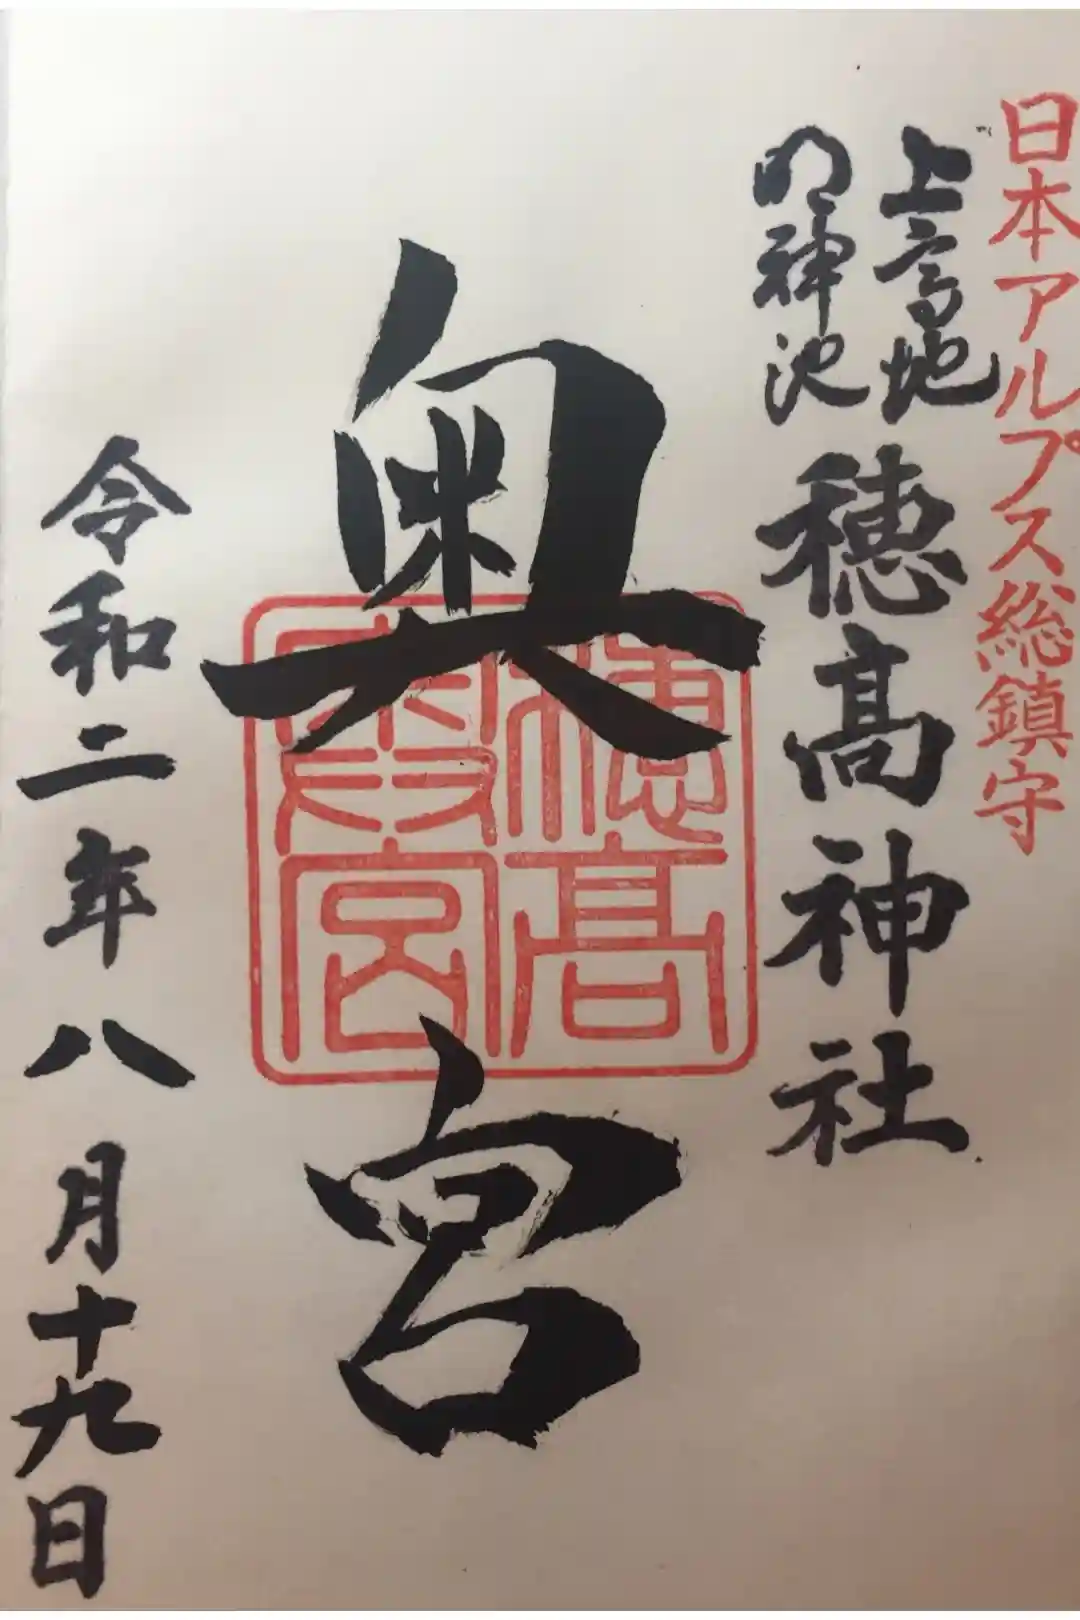 日本アルプス総鎮守
上高地
明神池
穂髙神社
奥宮
穂髙
奥宮
令和二年八月十九日